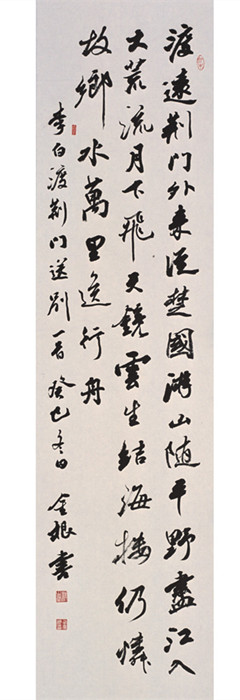 渡遠荆门外来從楚國遊山随平野盡江入
大荒流月下飛天鏡雲生結海樓仍憐
故鄉水萬里送行舟
李白渡荆门送别一首癸巳冬日金根書